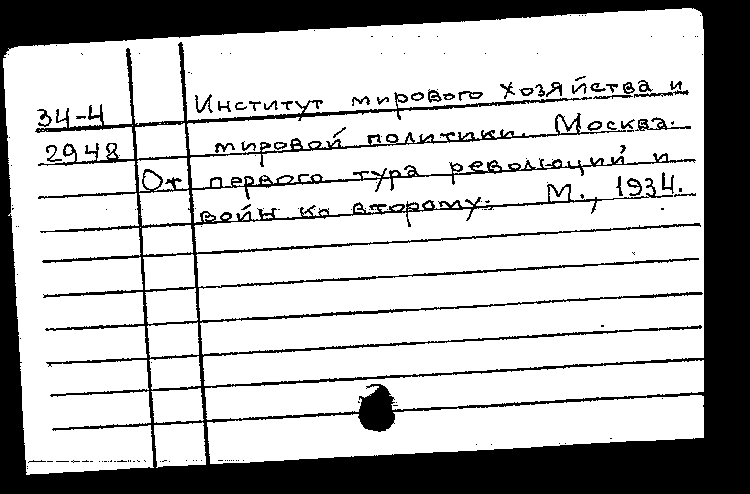 34-4 Институт мирового хозяйства и
2948 мировой политики. Москва.
От первого тура революций и
войн ко второму. М., 1934.